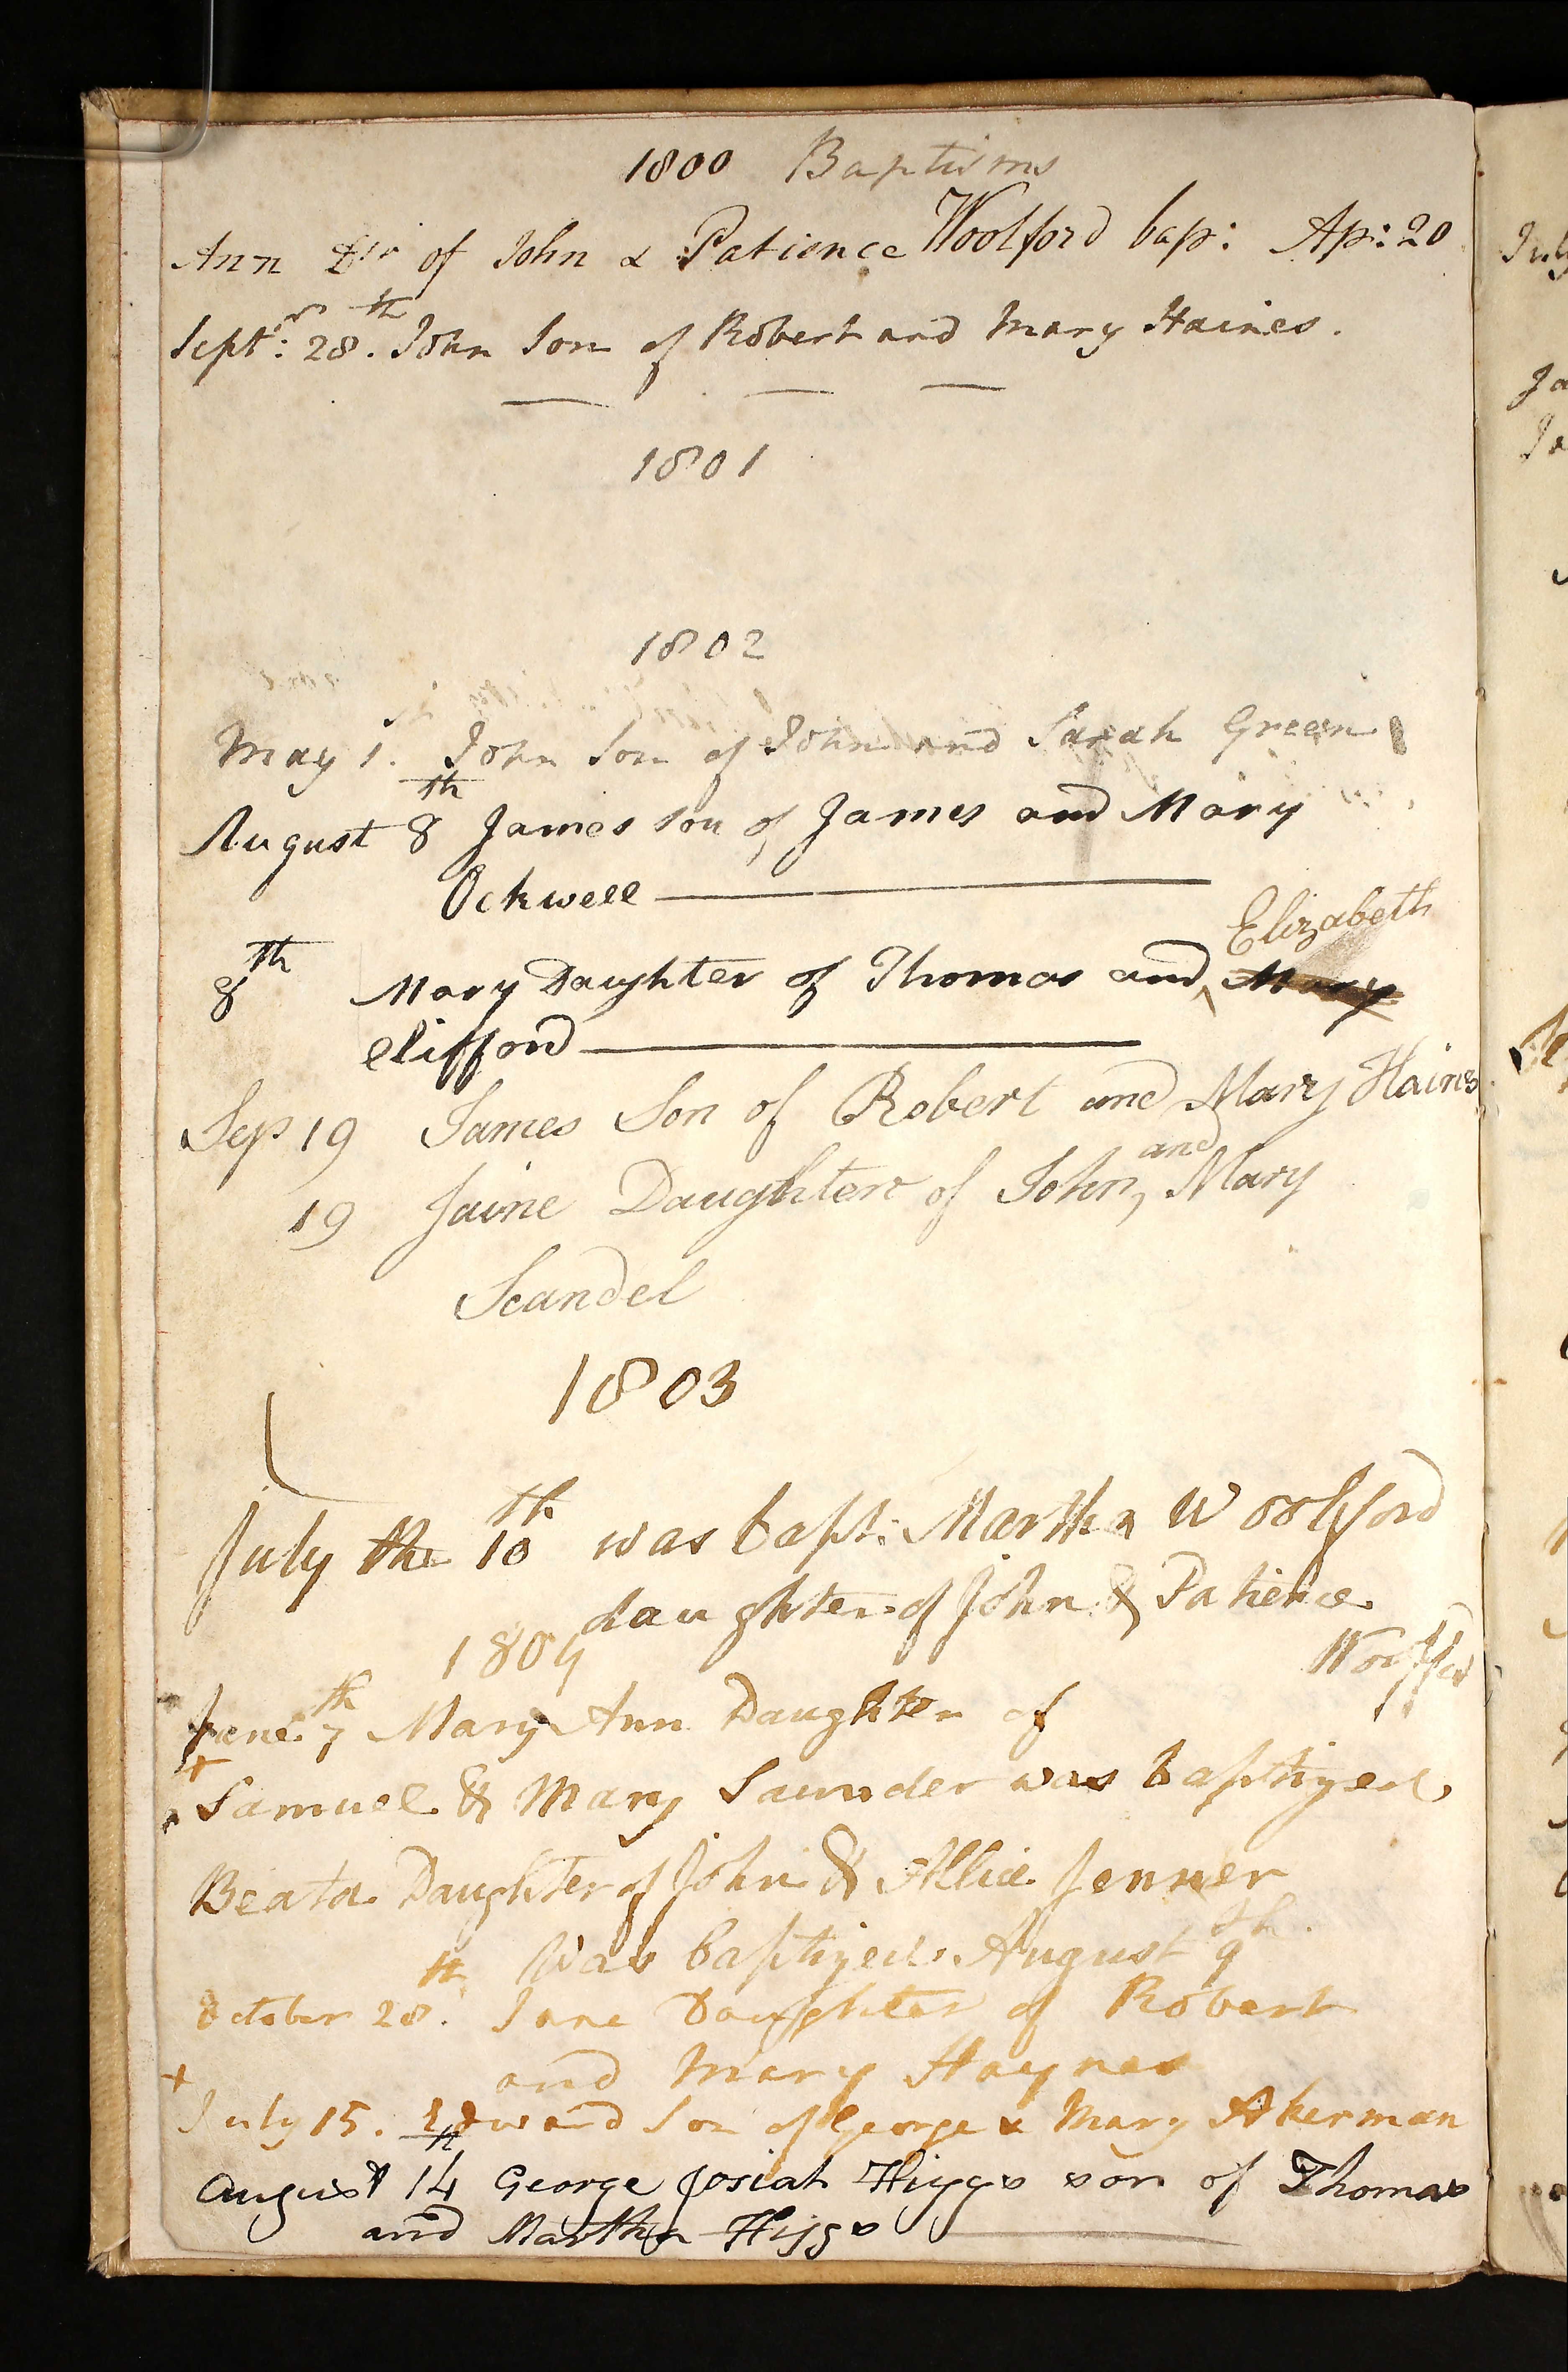 1800 Baptisms
Ann Dr of John & Patience Woolford bap: Ap: 20
Septr: 28th. John Son of Robert and Mary Haines.
1801
1802
May 1st. John Son of John and Sarah Green
August 8th James son of James and Mary
Ockwell
8th Mary Daughter of Thomas and Elizabeth Mary
Clifford
Sep 19 James Son of Robert and Mary Hains
19 Jaine Daughter of John, and Mary
Scandel
1803
July the 10th was bapt: Martha Woolford
daughter of John & Patience
1804
June 7th Mary Ann Daughter of
Samuel & Mary Saunder was baptized
Beata Daughter of John & Allice Jenner
Was baptized August 9th.
October 28th. Jane Daughter of Robert
and Mary Haynes
+ July 15. Edward Son of George & Mary Akerman
august 14th George Josiah Higgs son of Thomas
and Martha Higgs